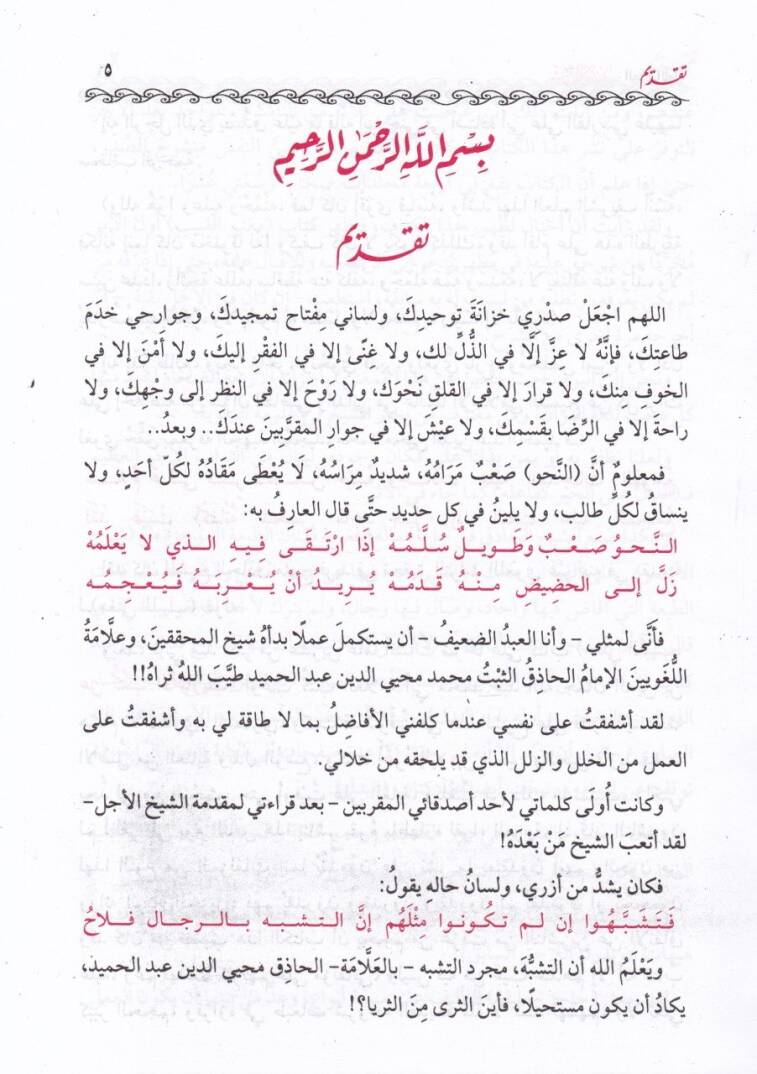 تقديم ٥
بِسْمِ اللَّهِ الرَّحْمَٰنِ الرَّحِيمِ
تقديم
اللهم اجْعَلْ صدرِي خزانَةَ توحيدِكَ، ولساني مِفْتاح تمجيدِكَ، وجوارحي خدَمَ
طاعتِكَ، فإنَّهُ لا عزَّ إلَّا في الذُّلِّ لك، ولا غنَى إلا في الفقْرِ إليكَ، ولا أَمْنَ إلا في
الخوف منكَ، ولا قرارَ إلا في القلقِ نَحْوَك، ولا رَوْحَ إلا في النظر إلى وجْهِكَ، ولا
راحةَ إلا في الرِّضَا بقَسْمِك، ولا عيْشَ إلا في جوارِ المقرَّبِينَ عندَكَ.. وبعد..
فمعلومٌ أنَّ (النَّحوَ) صَعْبٌ مَرَامُهُ، شديدٌ مِرَاسُهُ، لَا يُعْطَى مَقَادُهُ لكُلِّ أحَدٍ، ولا
ينساقُ لكُلِّ طالب، ولا يلينُ في كل حديد حتَّى قال العارِفُ به:
النَّحوُ صَعْبٌ وَطويلٌ سُلَّمُه إذَا ارْتَقَى فيه الذي لا يَعْلَمُهْ
زَلَّ إلى الحضيضِ مِنْهُ قدَمُه يريدُ أن يُعْرِبَه فيُعْجِمُه
فأنَّى لمثلي - وأنا العبدُ الضعيفُ - أن يستكملَ عملًا بدأهُ شيخُ المحققين، وعلَّامَةُ
اللُّغَويينَ الإمامُ الحاذقُ الثبْتُ محمد محيي الدين عبد الحميد طيَّبَ اللهُ ثراهُ!!
لقد أشفقتُ على نفسي عندما كلفني الأفاضلُ بما لا طاقة لي به وأشفقتُ على
العمل من الخلل والزلل الذي قد يلحقه من خلالي.
وكانت أُولَى كلماتي لأحد أصدقائي المقربين - بعد قراءتي لمقدمة الشيخ الأجل-
لقد أتعبَ الشيخُ مَنْ بَعْدَهُ!
فكان يشدُّ من أزري، ولسانُ حاله يقولُ:
فَتَشَبَّهُوا إن لم تكونوا مثْلَهُم إنَّ التشبه بالرجال فلاحُ
ويَعْلَمُ الله أن التشبُّهَ، مجرد التشبه - بالعَلَّامَة- الحاذِق محيي الدين عبد الحميد،
يكادُ أن يكون مستحيلًا، فأينَ الثرى مِنَ الثريا؟!